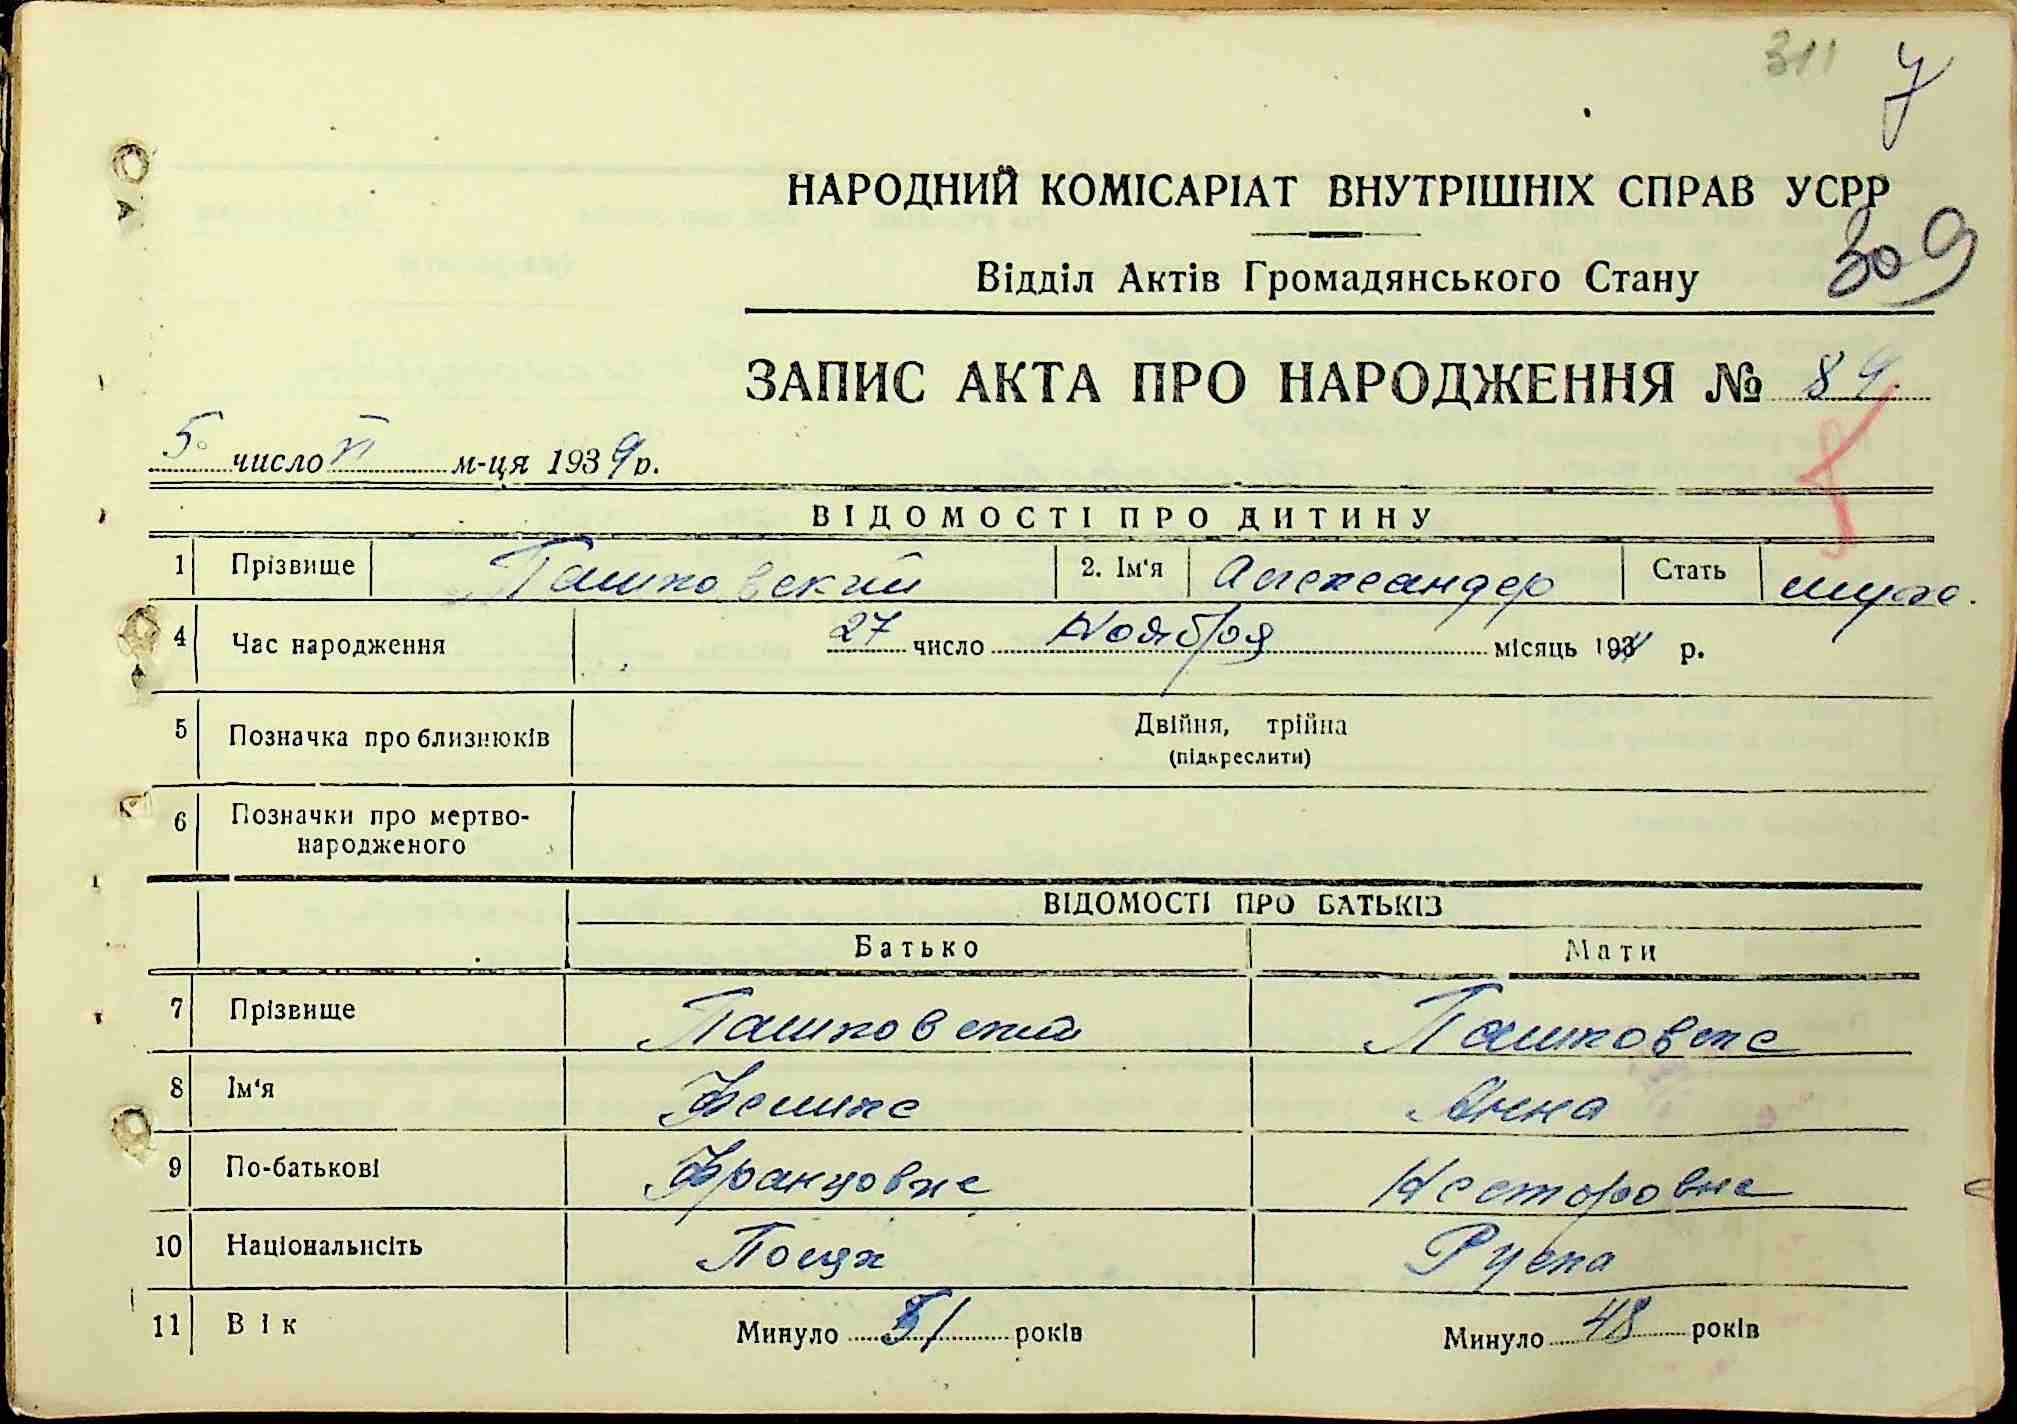 311 7
НАРОДНИЙ КОМІСАРІАТ ВНУТРІШНІХ СПРАВ УСРР
309
Відділ Актів Громадянського Стану
ЗАПИС АКТА ПРО НАРОДЖЕННЯ № 89
5 число VI м-ця 1939 р.
ВІДОМОСТІ ПРО ДИТИНУ
1 Прізвище Пашковский 2. Ім'я Александер Стать муж.
4 Час народження 27 число Ноября місяць 193 р.
5 Позначка про близнюків Двійня, трійна
(підкреслити)
6 Позначки про мертво-
народженого
ВІДОМОСТІ ПРО БАТЬКІВ
Батько Мати
7 Прізвище Пашковский Пашковска
8 Ім'я Феликс Анна
9 По-батькові Францовис Несторовна
10 Національність Поляк Руска
11 Вік Минуло 51 років Минуло 48 років